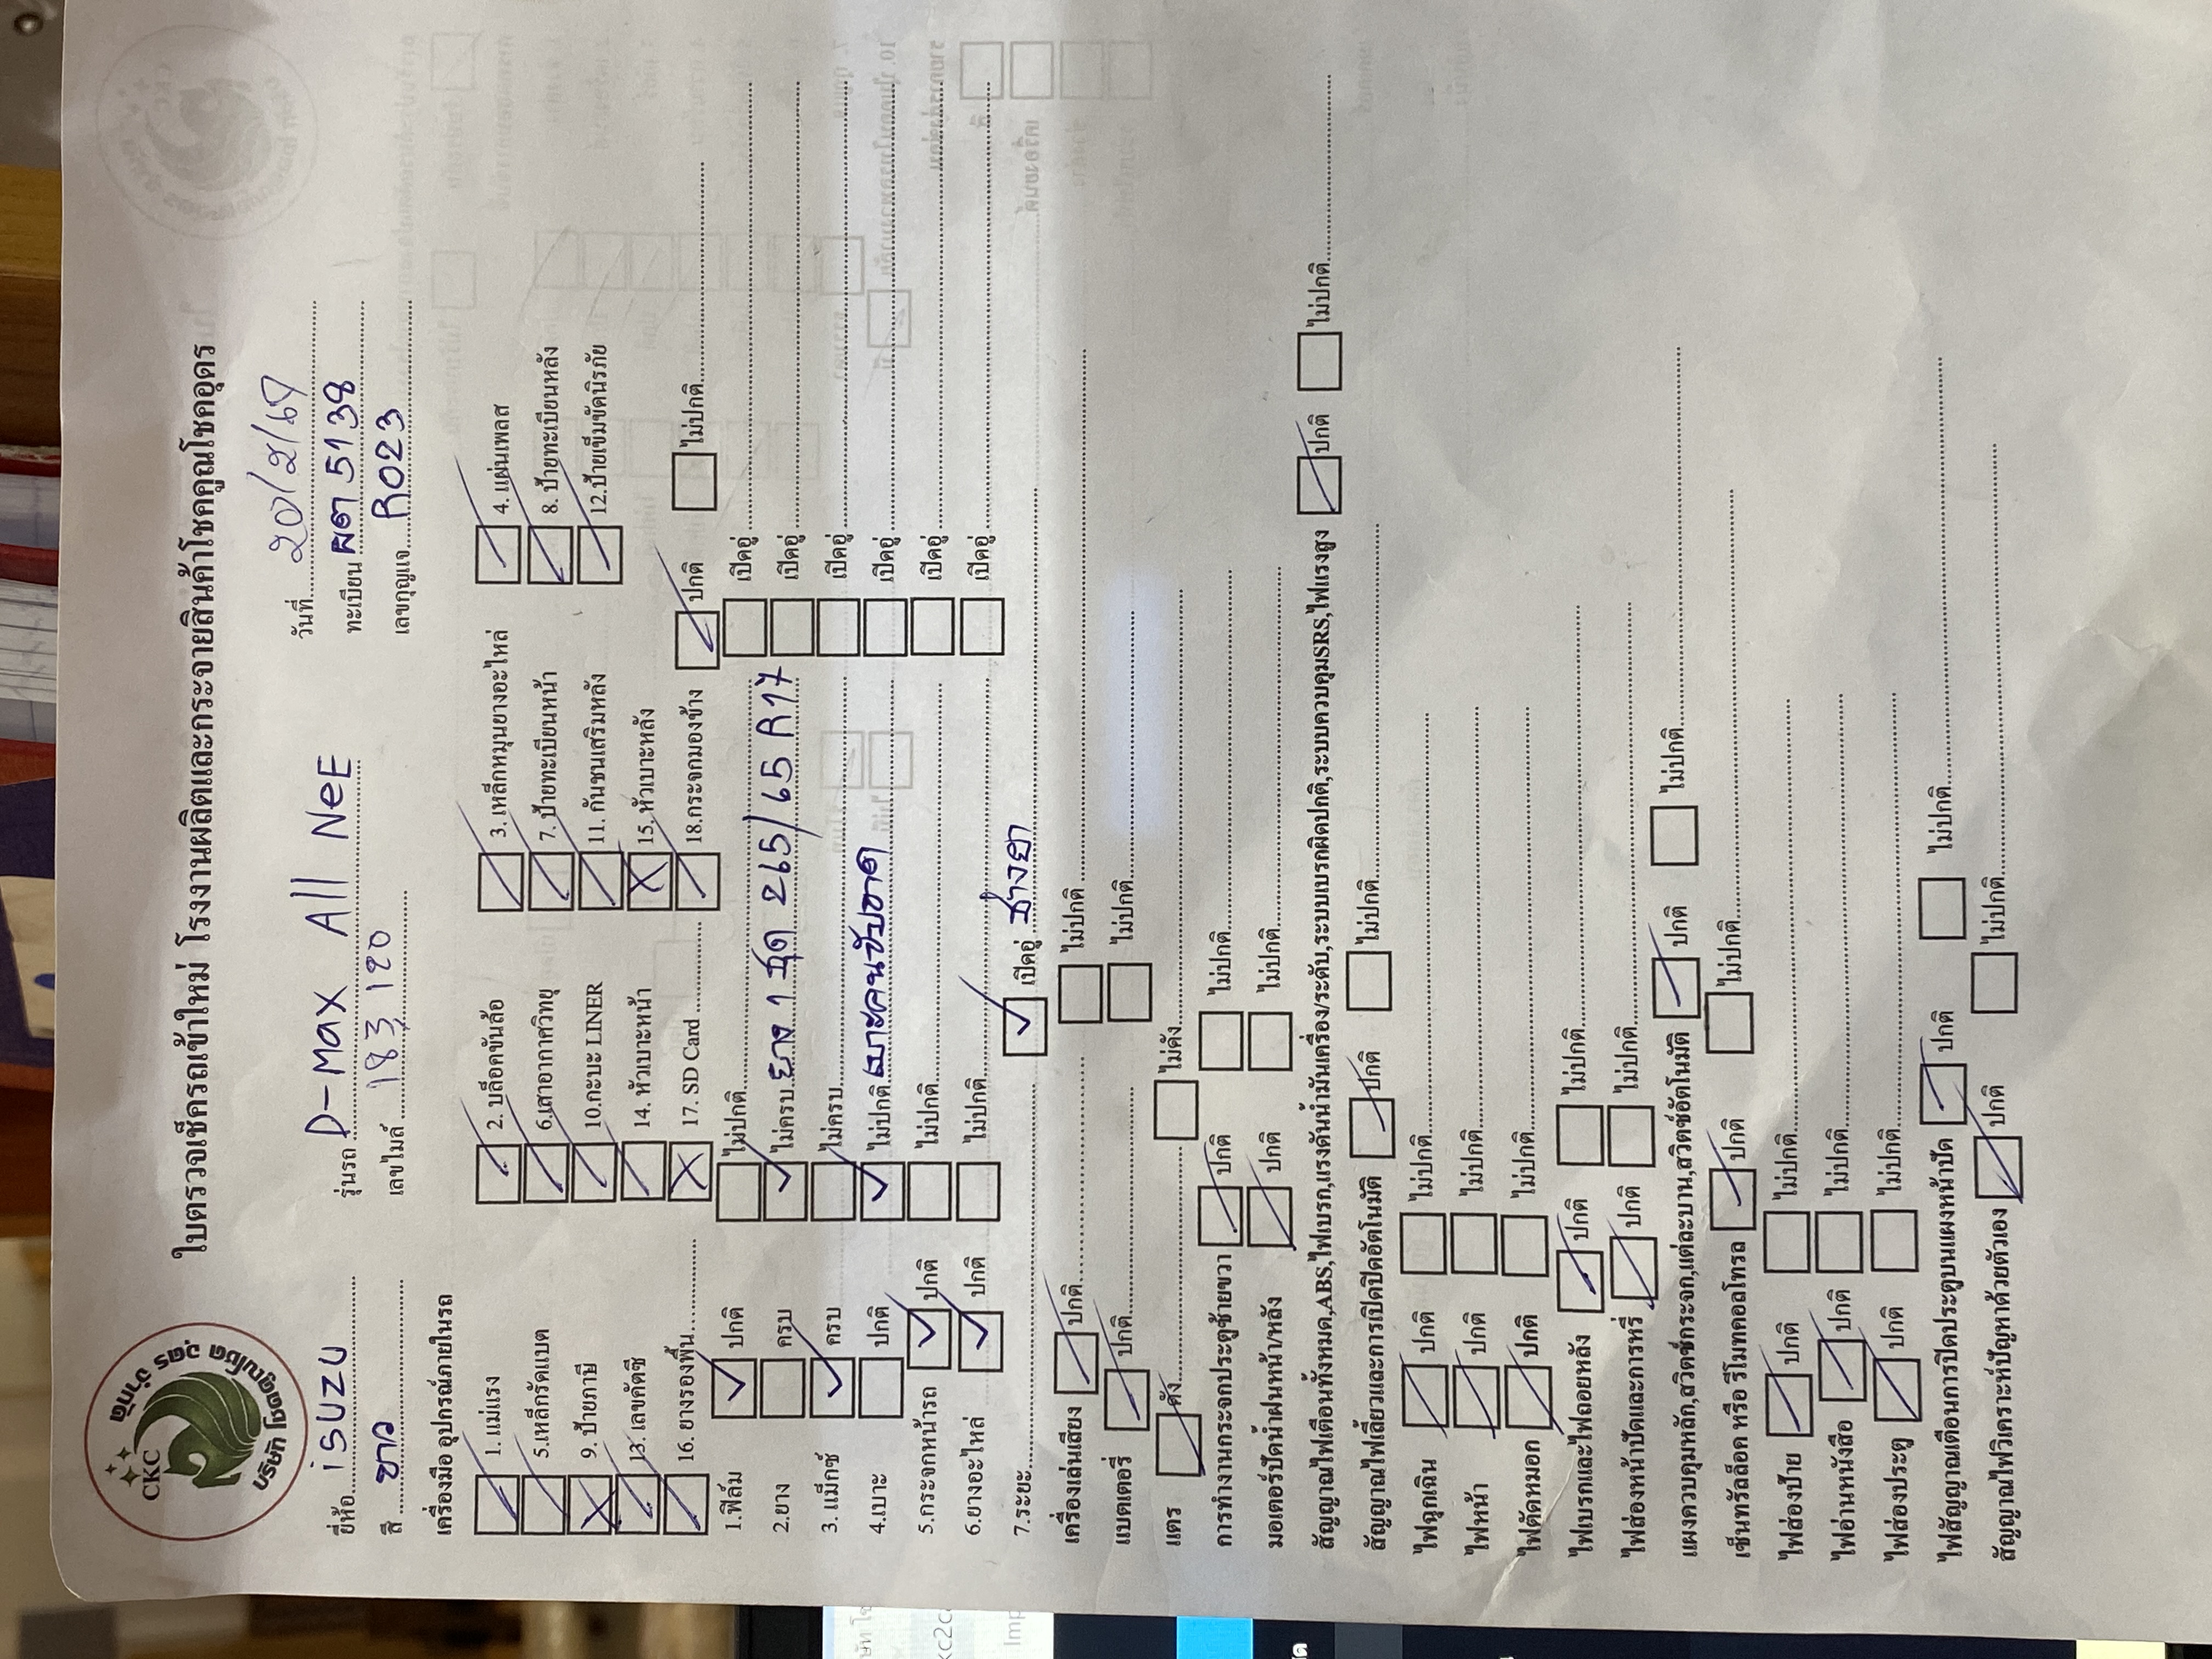 ใบตรวจเช็ครถเข้าใหม่ โรงงานผลิตและกระจายสินค้าโชคคูณโชคอุดร
CKC
บริษัท โชคคูณโชค อุดร จำกัด
วันที่ 20/2/67
ยี่ห้อ iSUZU รุ่นรถ D-Max All NeE ทะเบียน ผต 5138
สี ขาว เลขไมล์ 183,120 เลขกุญแจ R023
เครื่องมือ อุปกรณ์ภายในรถ
1. แม่แรง 2. บล็อคขันล้อ 3. เหล็กหมุนยางอะไหล่ 4. แผ่นเพลส
5.เหล็กรัดแบต 6.เสาอากาศวิทยุ 7. ป้ายทะเบียนหน้า 8. ป้ายทะเบียนหลัง
9. ป้ายภาษี 10.กะบะ LINER 11. กันชนเสริมหลัง 12.ป้ายเข็มขัดนิรภัย
13. เลขคัตซี 14. หัวเบาะหน้า 15. หัวเบาะหลัง
16. ยางรองพื้น 17. SD Card 18.กระจกมองข้าง ปกติ ไม่ปกติ
1.ฟิล์ม ปกติ ไม่ปกติ เปิดอยู่
2.ยาง ครบ ไม่ครบ ยาง 1 ชุด 265/65 R17 เปิดอยู่
3. แม็กซ์ ครบ ไม่ครบ เปิดอยู่
4.เบาะ ปกติ ไม่ปกติ เบาะคนขับขาด เปิดอยู่
5.กระจกหน้ารถ ปกติ ไม่ปกติ เปิดอยู่
6.ยางอะไหล่ ปกติ ไม่ปกติ เปิดอยู่
7.ระยะ เปิดอยู่
เครื่องเล่นเสียง ปกติ ไม่ปกติ
แบตเตอรี่ ปกติ ไม่ปกติ
แตร ดัง ไม่ดัง
การทำงานกระจกประตูซ้ายขวา ปกติ ไม่ปกติ
มอเตอร์ปัดน้ำฝนหน้า/หลัง ปกติ ไม่ปกติ
สัญญาณไฟเตือนทั้งหมด,ABS,ไฟเบรก,แรงดันน้ำมันเครื่อง/ระดับ,ระบบเบรกผิดปกติ,ระบบควบคุมSRS,ไฟแรงสูง ปกติ ไม่ปกติ
สัญญาณไฟเลี้ยวและการเปิดปิดอัตโนมัติ ปกติ ไม่ปกติ
ไฟฉุกเฉิน ปกติ ไม่ปกติ
ไฟหน้า ปกติ ไม่ปกติ
ไฟตัดหมอก ปกติ ไม่ปกติ
ไฟเบรกและไฟถอยหลัง ปกติ ไม่ปกติ
ไฟส่องหน้าปัดและการหรี่ ปกติ ไม่ปกติ
แผงควบคุมหลัก,สวิตซ์กระจก,แต่ละบาน,สวิตซ์อัตโนมัติ ปกติ ไม่ปกติ
เซ็นทรัลล็อค หรือ รีโมทคอลโทรล ปกติ ไม่ปกติ
ไฟส่องป้าย ปกติ ไม่ปกติ
ไฟอ่านหนังสือ ปกติ ไม่ปกติ
ไฟส่องประตู ปกติ ไม่ปกติ
ไฟสัญญาณเตือนการปิดประตูบนแผงหน้าปัด ปกติ ไม่ปกติ
สัญญาณไฟวิเคราะห์ปัญหาด้วยตัวเอง ปกติ ไม่ปกติ